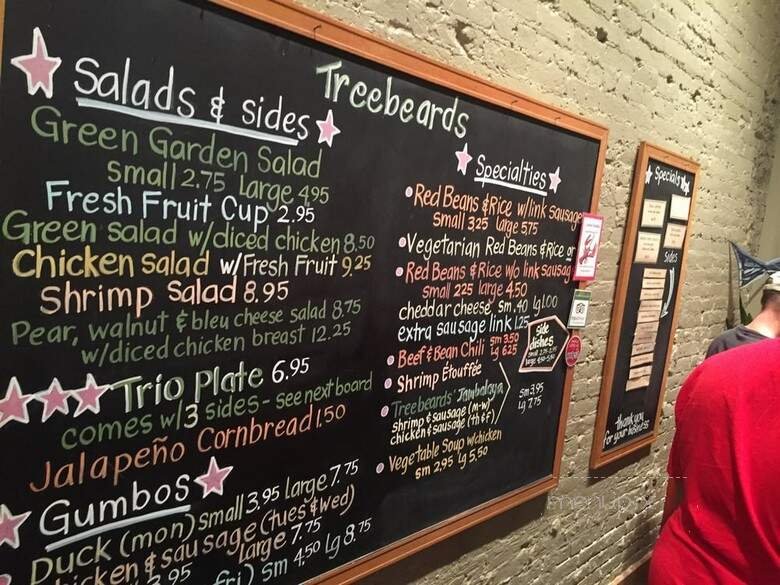 Treebeards
Salads & sides
Green Garden Salad
small 2.75 large 4.95
Fresh Fruit Cup 2.95
Green salad w/diced chicken 8.50
Chicken salad w/Fresh Fruit 9.25
Shrimp Salad 8.95
Pear, walnut & bleu cheese salad 8.75
w/diced chicken breast 12.25
Trio Plate 6.95
comes w/3 sides - see next board
Jalapeño Cornbread 1.50
Gumbos
Duck (mon) small 3.95 large 7.75
chicken & sausage (tues & wed)
large 7.75
fri) sm 4.50 lg 8.75
Specialties
Red Beans & Rice w/link sausage
small 3.25 large 5.75
Vegetarian Red Beans & Rice or
Red Beans & Rice w/o link sausage
small 2.25 large 4.50
cheddar cheese sm .40 lg 1.00
extra sausage link 1.25
Beef & Bean Chili sm 3.50
lg 6.25
Shrimp Étouffée
Treebeards' Jambalaya
shrimp & sausage (m-w)
chicken & sausage (th & f)
sm 3.95
lg 7.75
Vegetable Soup w/chicken
sm 2.95 lg 5.50
side
dishes
Specials
Sides
thank you
for your business
menupix